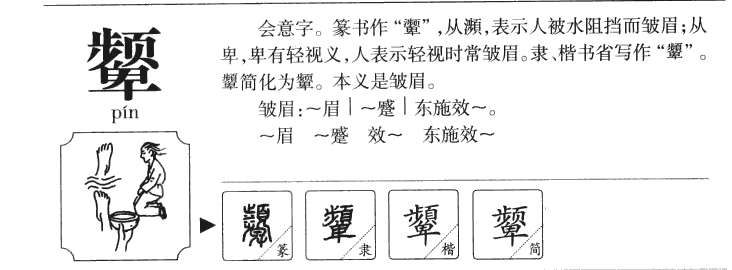 颦
pín
会意字。篆书作“顰”,从瀕,表示人被水阻挡而皱眉;从
卑,卑有轻视义,人表示轻视时常皱眉。隶、楷书省写作“顰”。
顰简化为颦。本义是皱眉。
皱眉:～眉｜～蹙｜东施效～。
～眉 ～蹙 效～ 东施效～
顰 篆 顰 隶 顰 楷 颦 简